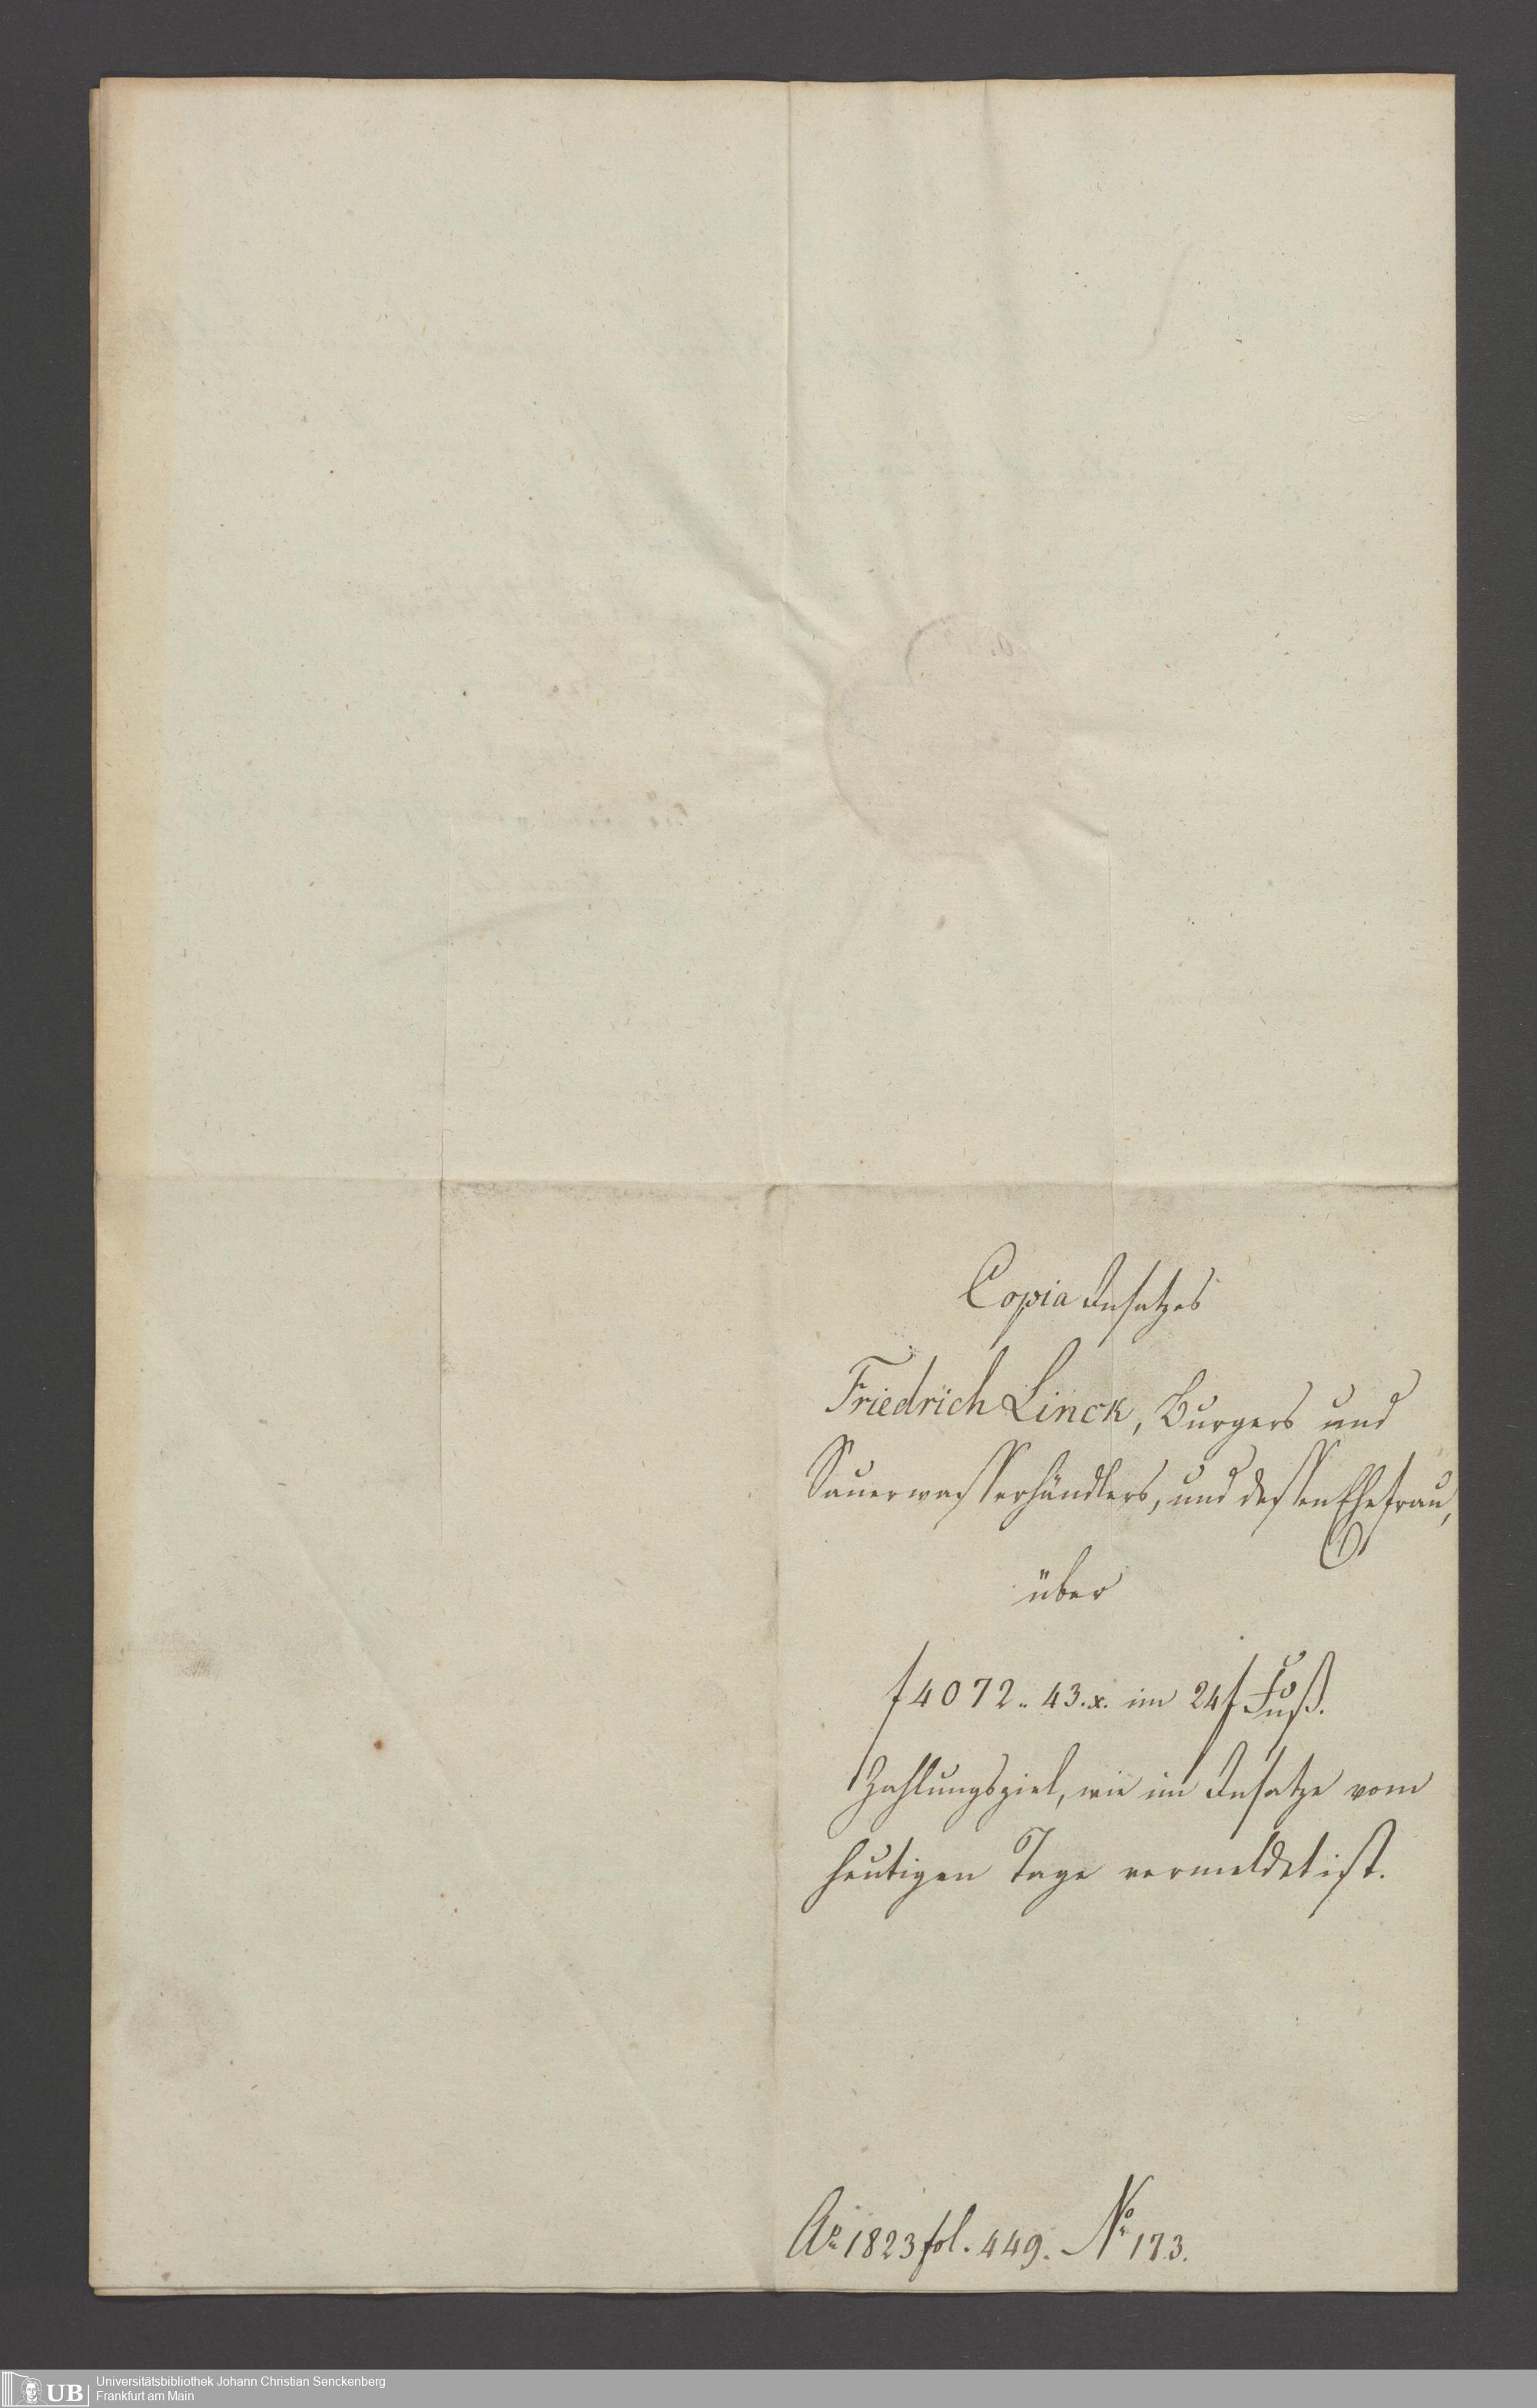 Copia Insatzes
Friedrich Linck, Burgers und
Sauerwasserhändlers, und dessen Ehefrau,
über
f 4072 „ 43. x. im 24 f Fuß.
Zahlungsziel, wie im Insatze vom
heutigen Tage vermeldet ist.
Ao 1823 fol. 449. No 173.
UB
Universitätsbibliothek Johann Christian Senckenberg
Frankfurt am Main